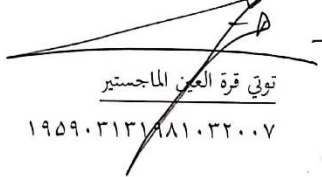 توتي قرة العين الماجستير
١٩٥٩٠٣١٣١٩٨١٠٣٢٠٠٧